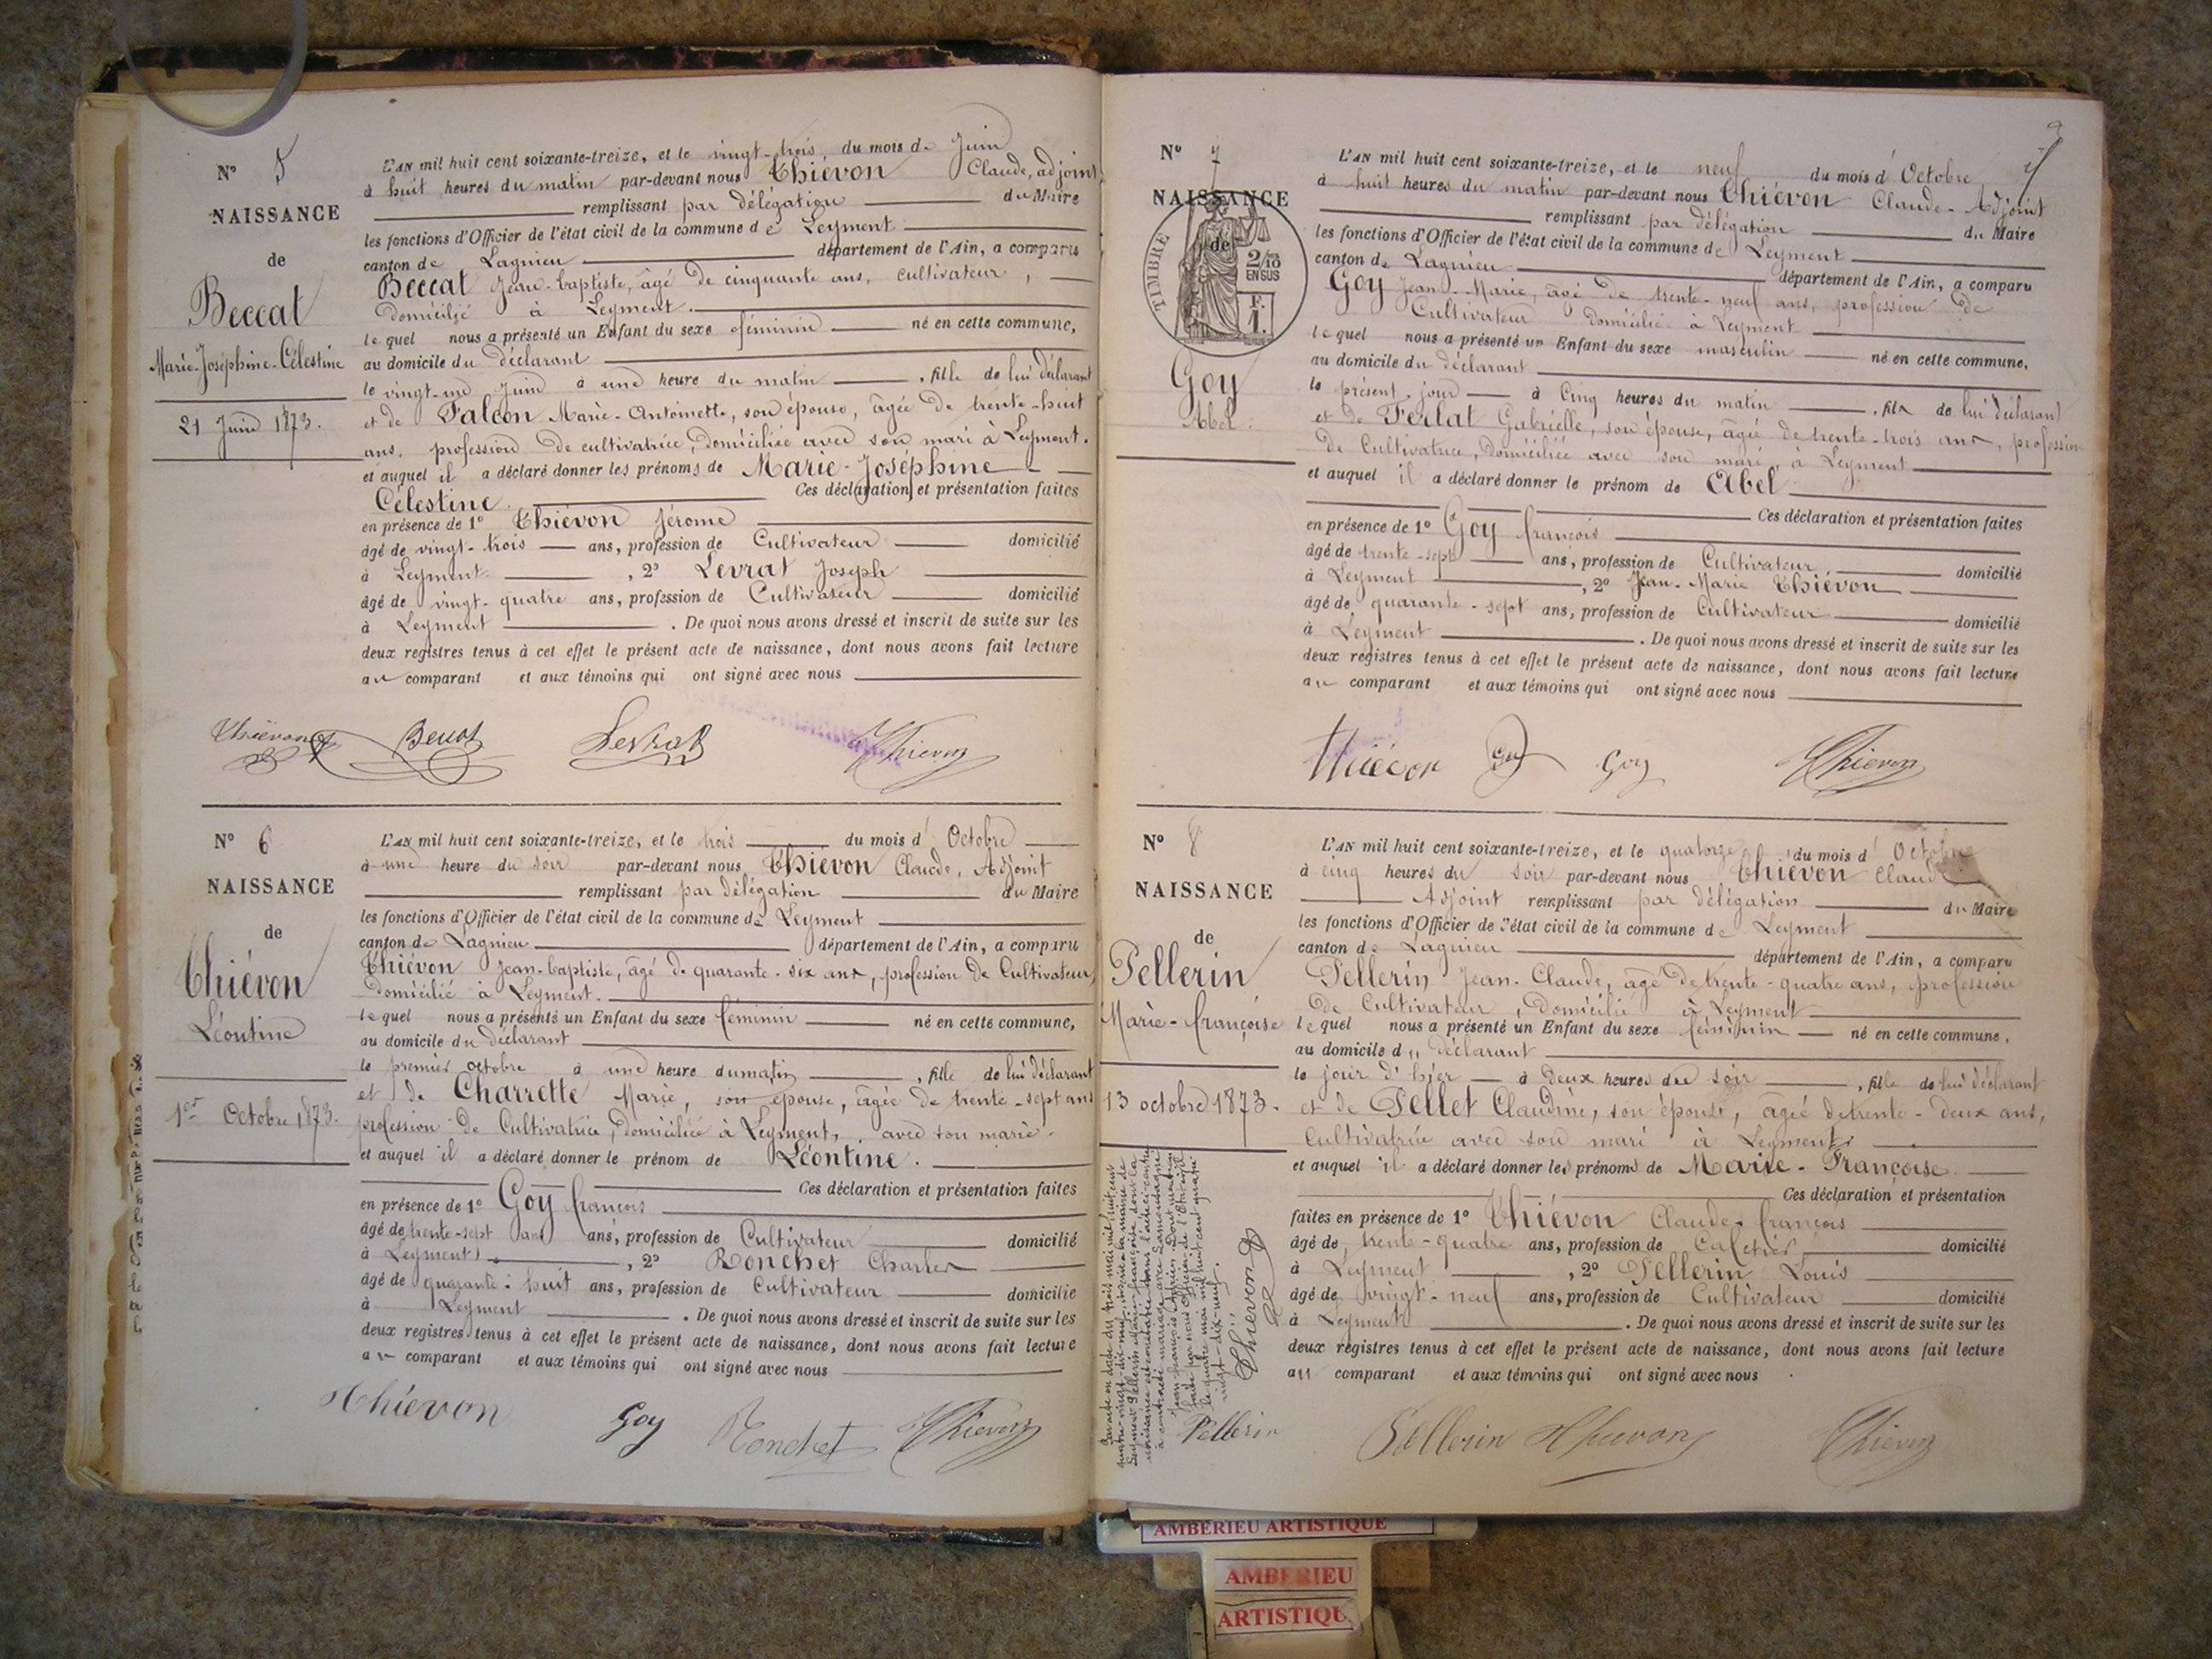 N° 5
NAISSANCE
de
Beccat
Marie-Joséphine-Célestine
21 Juin 1873.
L'AN mil huit cent soixante-treize, et le vingt-trois du mois de Juin
à huit heures du matin par-devant nous Thiévon Claude, adjoint
remplissant par délégation du Maire
les fonctions d'Officier de l'état civil de la commune de Leyment
canton de Lagnieu département de l'Ain, a comparu
Beccat Jean-baptiste, âgé de cinquante ans, cultivateur,
domicilié à Leyment.
lequel nous a présenté un Enfant du sexe féminin né en cette commune,
au domicile du déclarant
le vingt-un Juin à une heure du matin, fille de lui déclarant
et de Falcon Marie-Antoinette, son épouse, âgée de trente-huit
ans, profession de cultivatrice, domiciliée avec son mari à Leyment.
et auquel il a déclaré donner les prénoms de Marie-Joséphine
Célestine. Ces déclaration et présentation faites
en présence de 1° Thiévon Jérome
âgé de vingt-trois ans, profession de Cultivateur domicilié
à Leyment, 2° Levrat Joseph
âgé de vingt-quatre ans, profession de Cultivateur domicilié
à Leyment. De quoi nous avons dressé et inscrit de suite sur les
deux registres tenus à cet effet le présent acte de naissance, dont nous avons fait lecture
au comparant et aux témoins qui ont signé avec nous
Thiévon Levrat Thievon
N° 6
NAISSANCE
de
Thiévon
Léontine
1er Octobre 1873.
L'AN mil huit cent soixante-treize, et le trois du mois d' Octobre
à une heure du soir par-devant nous Thiévon Claude, Adjoint
remplissant par délégation du Maire
les fonctions d'Officier de l'état civil de la commune de Leyment
canton de Lagnieu département de l'Ain, a comparu
Thiévon Jean-baptiste, âgé de quarante-six ans, profession de Cultivateur,
domicilié à Leyment.
lequel nous a présenté un Enfant du sexe féminin né en cette commune,
au domicile du déclarant
le premier octobre à une heure du matin, fille de lui déclarant
et de Charrette Marie, son épouse, âgée de trente-sept ans
profession de Cultivatrice, domiciliée à Leyment, avec son marie.
et auquel il a déclaré donner le prénom de Léontine.
Ces déclaration et présentation faites
en présence de 1° Goy françois
âgé de trente-sept ans ans, profession de Cultivateur domicilié
à Leyment, 2° Ronchet Charles
âgé de quarante-huit ans, profession de Cultivateur domicilié
à Leyment. De quoi nous avons dressé et inscrit de suite sur les
deux registres tenus à cet effet le présent acte de naissance, dont nous avons fait lecture
au comparant et aux témoins qui ont signé avec nous
Thiévon Goy Ronchet Thievon
N° 7
NAISSANCE
de
TIMBRE
2/10
EN SUS
F.
1.
Goy
Abel.
L'AN mil huit cent soixante-treize, et le neuf du mois d' Octobre
à huit heures du matin par-devant nous Thiévon Claude-Adjoint
remplissant par délégation du Maire
les fonctions d'Officier de l'état civil de la commune de Leyment
canton de Lagnieu département de l'Ain, a comparu
Goy Jean-Marie, âgé de trente-neuf ans, profession de
Cultivateur domicilié à Leyment
lequel nous a présenté un Enfant du sexe masculin né en cette commune,
au domicile du déclarant
le présent jour à Cinq heures du matin, fils de lui déclarant
et de Ferlat Gabrielle, son épouse, âgée de trente-trois ans, profession
de Cultivatrice, domiciliée avec son mari, à Leyment
et auquel il a déclaré donner le prénom de Abel
Ces déclaration et présentation faites
en présence de 1° Goy françois
âgé de trente-sept ans, profession de Cultivateur domicilié
à Leyment, 2° Jean-Marie Thiévon
âgé de quarante-sept ans, profession de Cultivateur domicilié
à Leyment. De quoi nous avons dressé et inscrit de suite sur les
deux registres tenus à cet effet le présent acte de naissance, dont nous avons fait lecture
au comparant et aux témoins qui ont signé avec nous
Thiévon Goy Goy Thievon
N° 8
NAISSANCE
de
Pellerin
Marie-françoise
13 octobre 1873.
L'AN mil huit cent soixante-treize, et le quatorze du mois d' Octobre
à cinq heures du soir par-devant nous Thiévon Claude
Adjoint remplissant par délégation du Maire
les fonctions d'Officier de l'état civil de la commune de Leyment
canton de Lagnieu département de l'Ain, a comparu
Pellerin Jean-Claude, âgé de trente-quatre ans, profession
de Cultivateur, domicilié à Leyment
lequel nous a présenté un Enfant du sexe féminin né en cette commune,
au domicile du déclarant
le jour d'hier à deux heures du soir, fille de lui déclarant
et de Pellet Claudine, son épouse, âgée de trente-deux ans,
Cultivatrice avec son mari à Leyment
et auquel il a déclaré donner les prénoms de Marie-Françoise
Ces déclaration et présentation
faites en présence de 1° Thiévon Claude-françois
âgé de trente-quatre ans, profession de Cafetier domicilié
à Leyment, 2° Pellerin Louis
âgé de vingt-neuf ans, profession de Cultivateur domicilié
à Leyment. De quoi nous avons dressé et inscrit de suite sur les
deux registres tenus à cet effet le présent acte de naissance, dont nous avons fait lecture
au comparant et aux témoins qui ont signé avec nous
Par acte en date du trois mai mil huit cent
quatre-vingt-dix-neuf, inscrit à la mairie de
Leyment Pellerin Marie-françoise, dont la
naissance est constatée dans l'acte ci-contre
a contracté mariage avec
Jean françois Dont mention
faite par nous Officier de l'Etat civil
le quatre mai mil huit cent quatre
vingt-dix-neuf.
Thievon
Pellerin Pellerin Thievon Thievon
AMBERIEU ARTISTIQUE
AMBERIEU
ARTISTIQUE